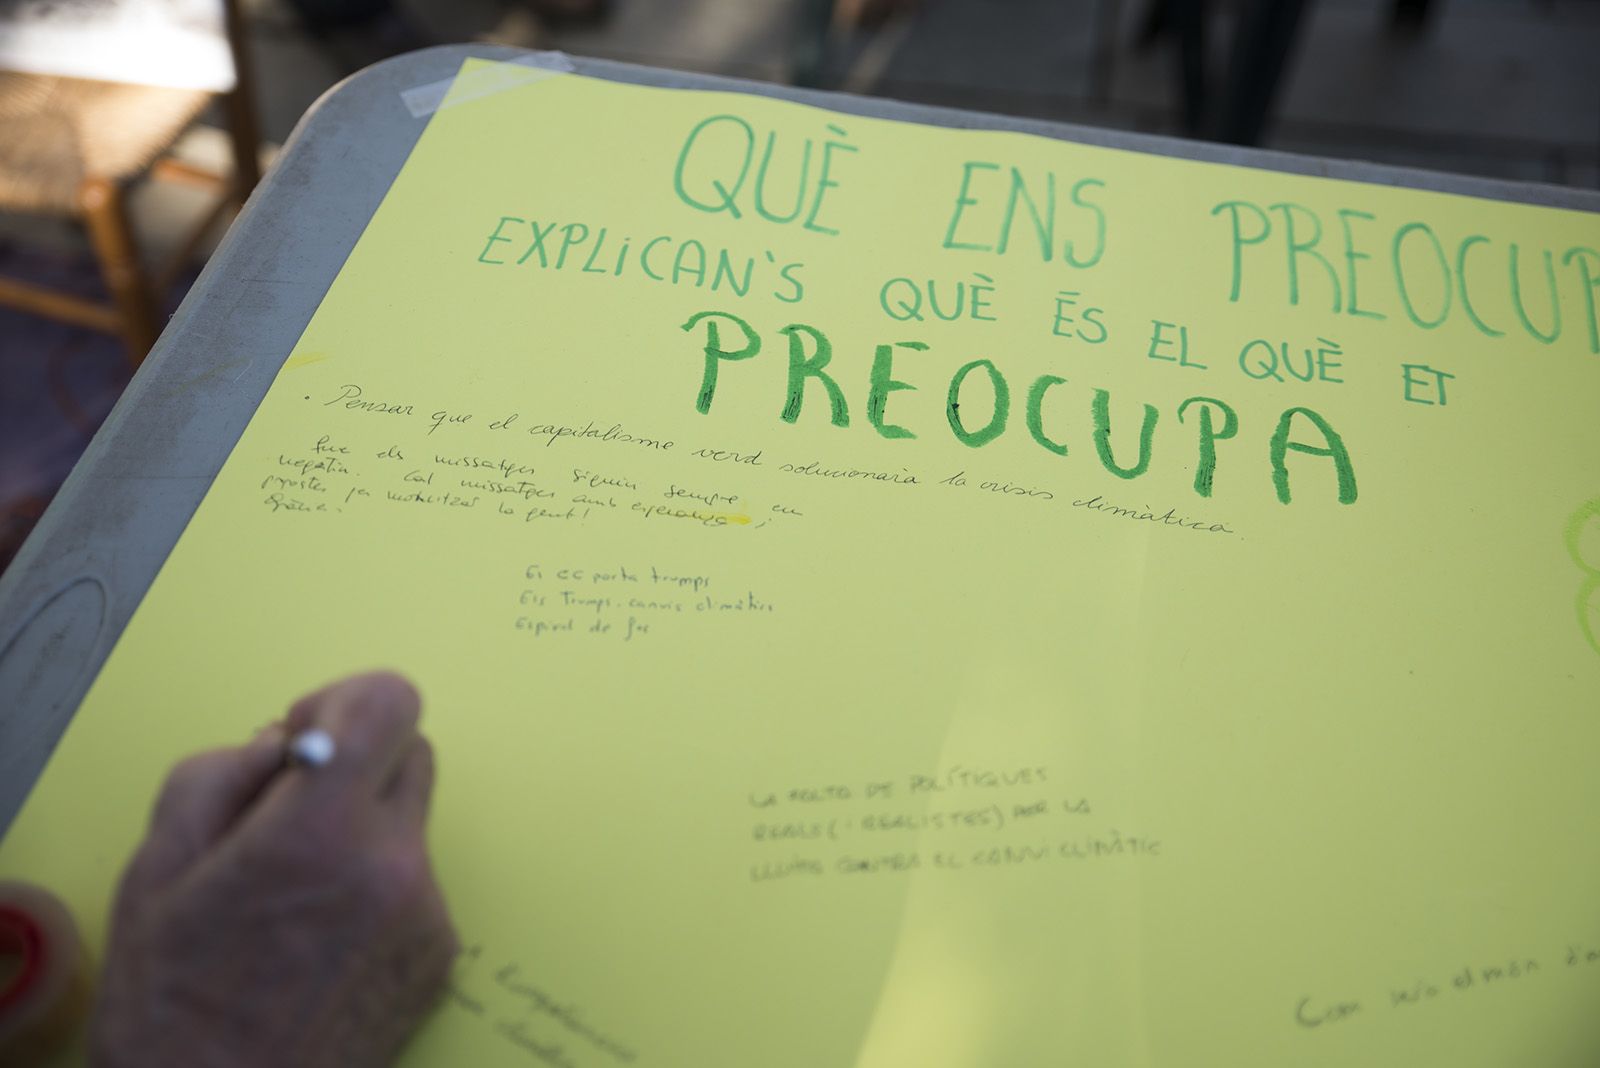 QUÈ ENS PREOCUP
EXPLICAN'S QUÈ ÉS EL QUÈ ET
PREOCUPA
· Pensar que el capitalisme verd solucionarà la crisis climàtica.
Que els missatges siguin sempre en
negatiu. Cal missatges amb esperança i
propostes per mobilitzar la gent!
Gràcies.
El CC porta trumps
Els Trumps. canvis climàtics
Espiral de
LA FALTA DE POLÍTIQUES
REALS (I REALISTES) PER LA
LLUITA CONTRA EL CANVI CLIMÀTIC
Com serà el món